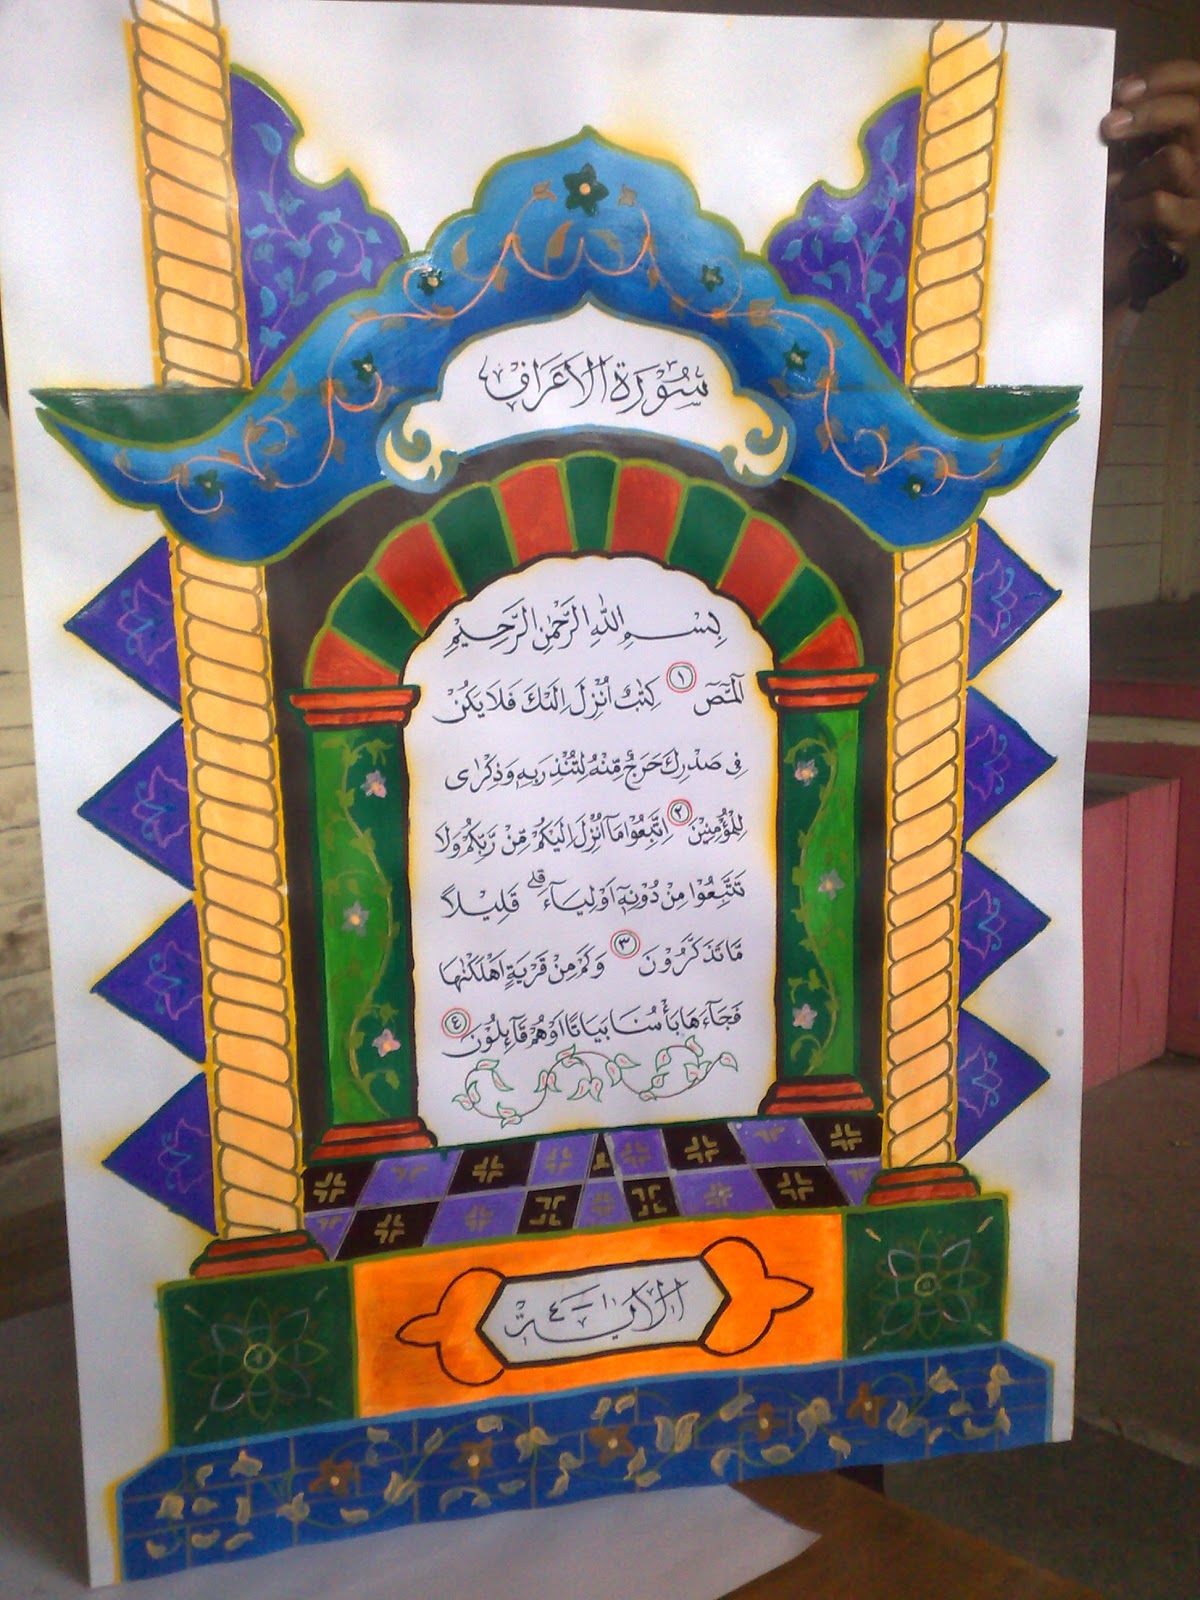 سُوْرَةُ الْاَعْرَافِ
بِسْمِ اللّٰهِ الرَّحْمٰنِ الرَّحِيْمِ
الٓمّٓصٓ ۱ كِتٰبٌ اُنْزِلَ اِلَيْكَ فَلَا يَكُنْ
فِى صَدْرِكَ حَرَجٌ مِّنْهُ لِتُنْذِرَ بِهٖ وَذِكْرٰى
لِلْمُؤْمِنِيْنَ ۲ اِتَّبِعُوْا مَآ اُنْزِلَ اِلَيْكُمْ مِّنْ رَّبِّكُمْ وَلَا
تَتَّبِعُوْا مِنْ دُوْنِهٖٓ اَوْلِيَآءَ ۗ قَلِيْلًا
مَّا تَذَكَّرُوْنَ ۳ وَكَمْ مِنْ قَرْيَةٍ اَهْلَكْنٰهَا
فَجَآءَهَا بَأْسُنَا بَيَاتًا اَوْهُمْ قَآئِلُوْنَ ٤
الاية ۱-٤